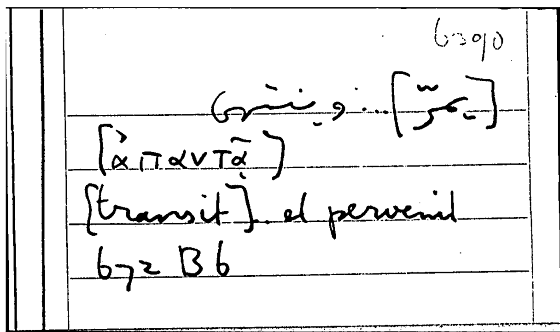 6390
[يمرّ] ... وينتهى
[ἀπαντᾷ]
[transit] et pervenit
672 B 6